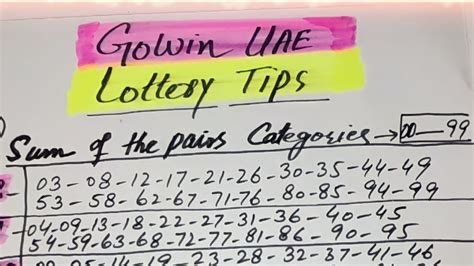 Gowin UAE
Lottery Tips
Sum of the pairs Categories → 00—99
03-08-12-17-21-26-30-35-44-49
53-58-62-67-71-76-80-85-94-99
04-09-13-18-22-27-31-36-40-45
54-59-63-68-72-77-81-86-90-95
05-14-19-23-28-32-37-41-46